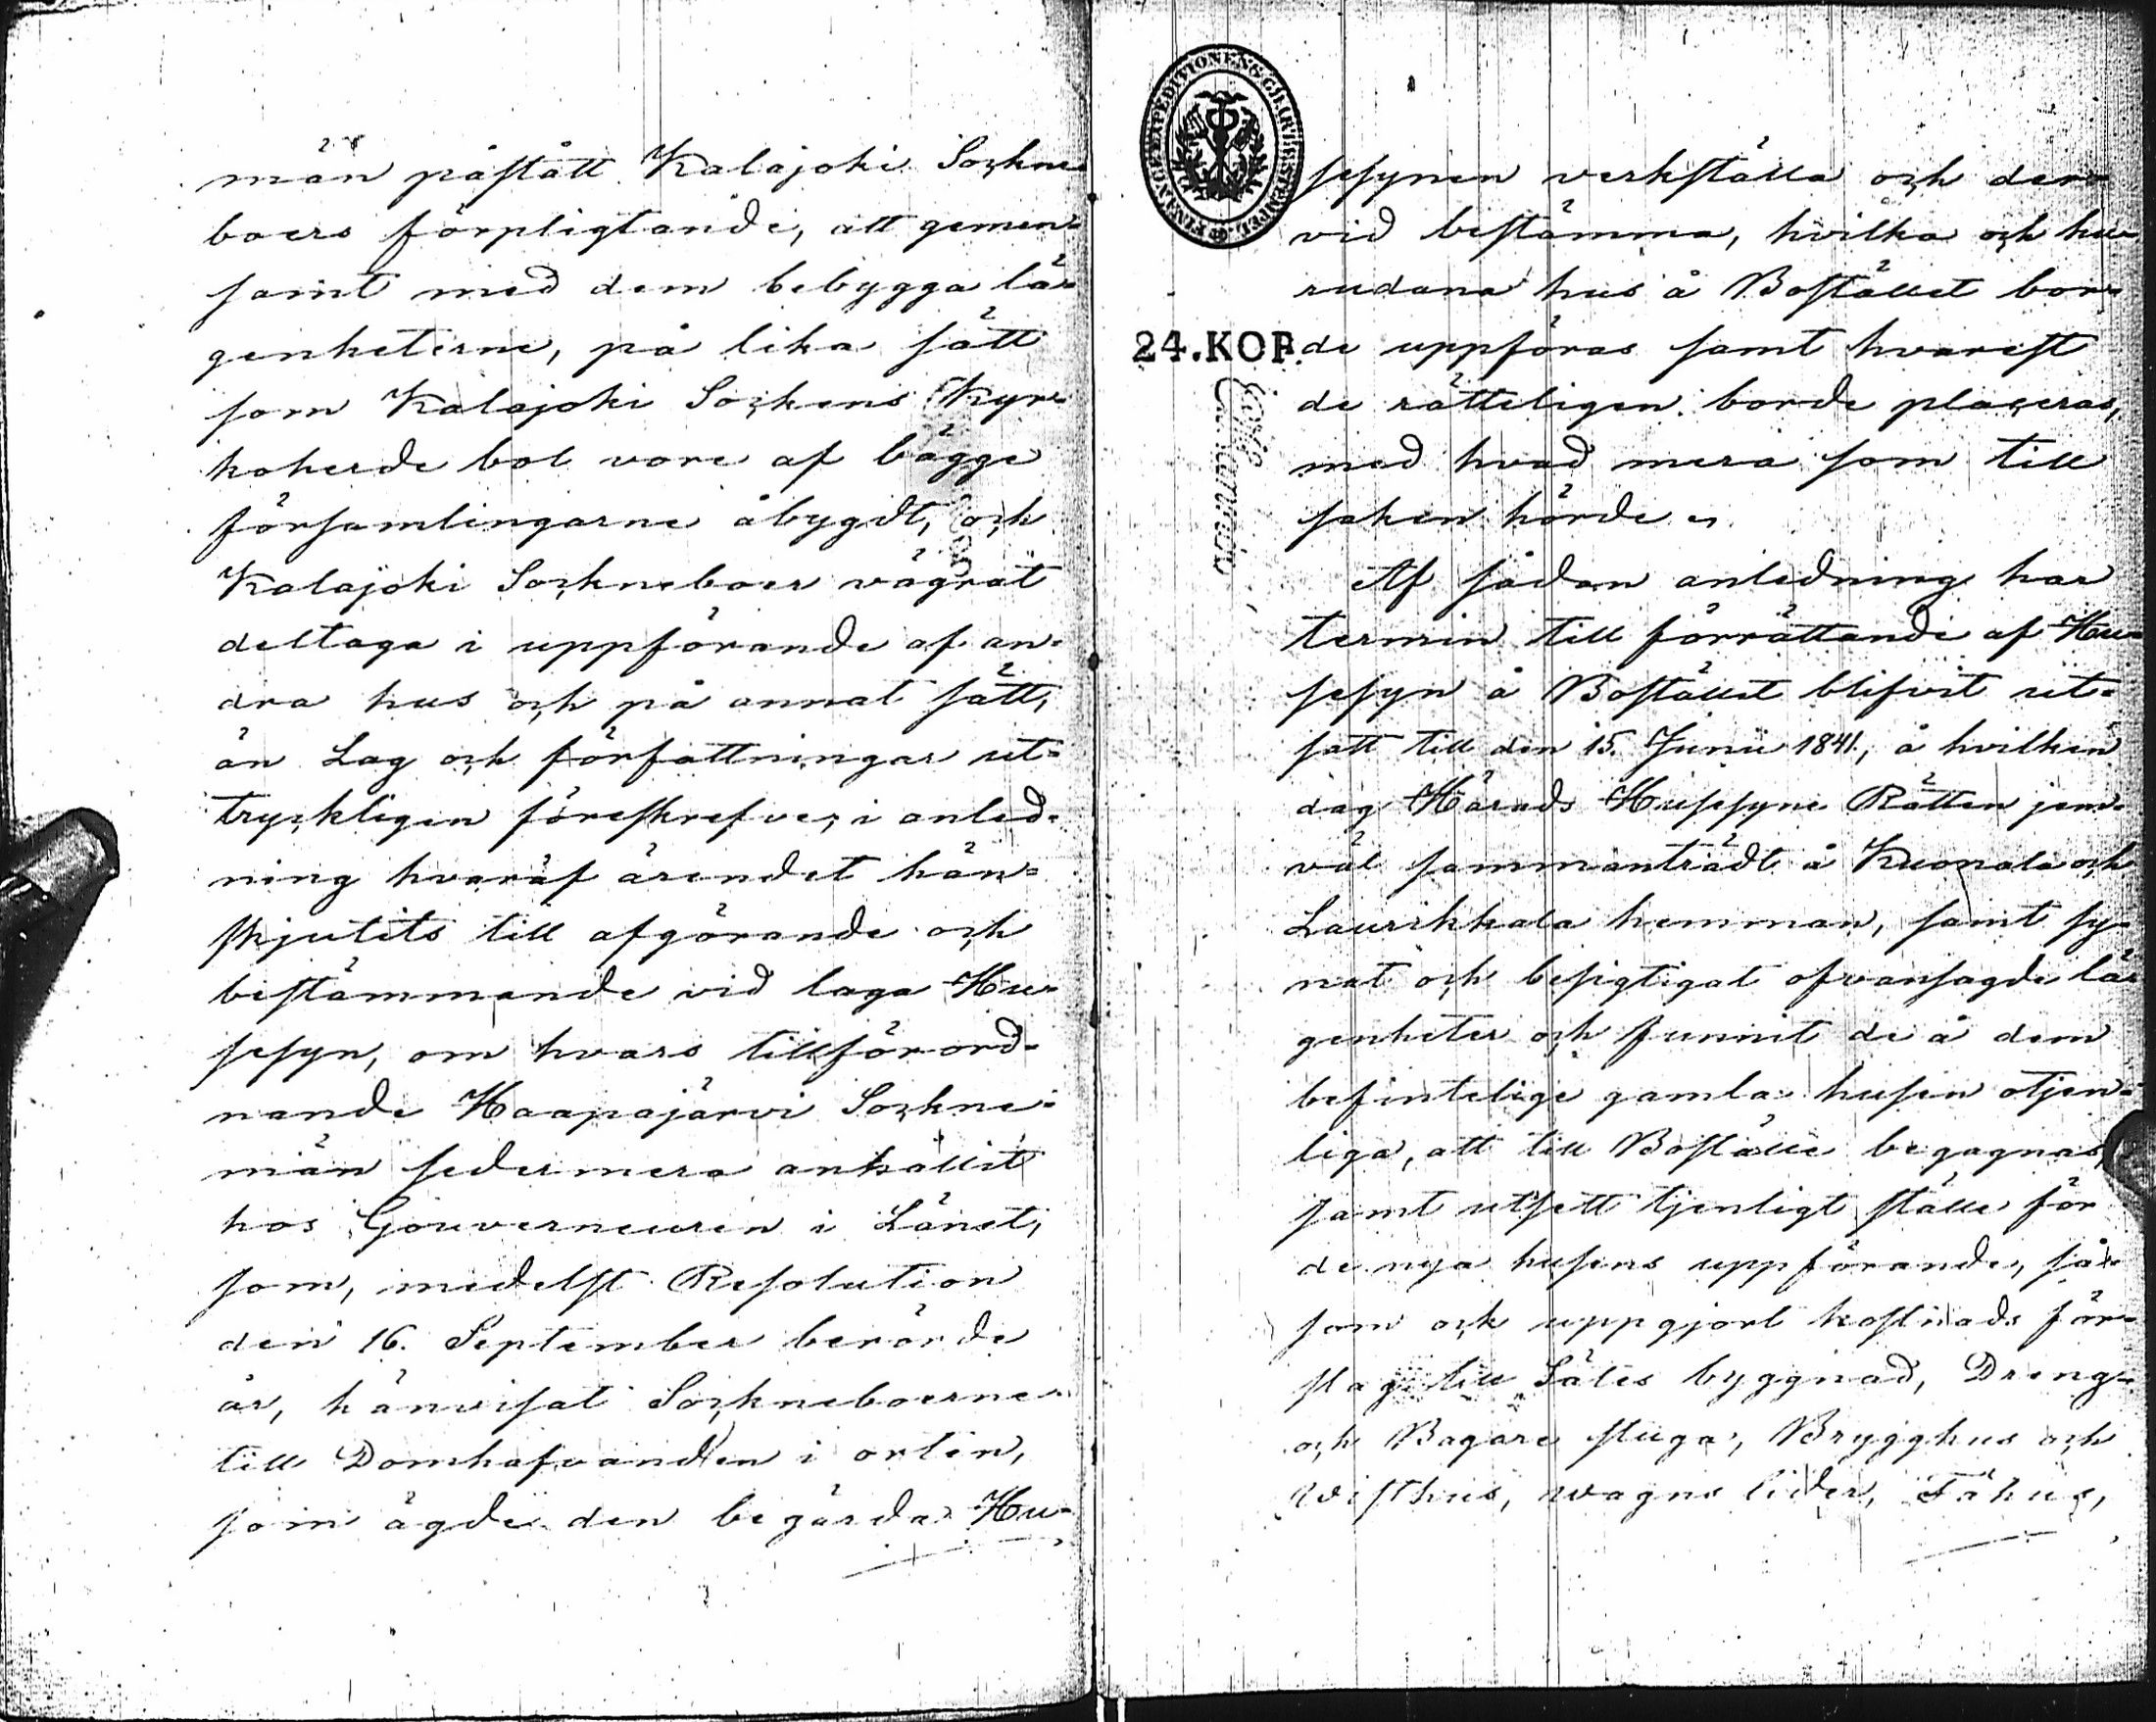 män påstått Kalajoki Sockne
boers förpligtande, att gemen-
samt med dem bebygga lä-
genheterne, på lika sätt
som Kalajoki Sockens Kyr-
koherde bol vore af bägge
församlingarne åbygdt, och
Kalajoki Sockneboer vägrat
deltaga i uppförande af an-
dra hus och på annat sätt,
än Lag och författningar ut-
tryckligen föreskrefve, i anled-
ning hvaraf ärendet hän-
skjutits till afgörande och
bestämmande vid laga Hu-
sesyn, om hvars tillförord-
nande Haapajärvi Sockne-
män sedermera anhållit
hos Gouverneuren i Länet,
som, medelst Resolution
den 16. September berörde
år, hänvisat Sockneboerne
till Domhafvanden i orten,
som ägde den begärda Hu-
FINANCE EXPEDITIONENS CHARTÆ STEMPEL
24.KOP.
sesynen verkställa och der-
vid bestämma, hvilka och hu-
rudana hus å Bostället bor-
de uppföras samt hvarest
de rätteligen borde placeras,
med hvad mera som till
saken hörde.
Af sådan anledning har
termin till förrättande af Hu-
sesyn å Bostället blifvit ut-
satt till den 15. Junii 1841, å hvilken
dag Härads Husesyne Rätten jem-
väl sammanträdt å Kuonala och
Laurikkala hemman, samt sy-
nat och besigtigat ofvansagde lä-
genheter och funnit de å dem
befintelige gamla husen otjen-
liga, att till Boställe begagnas,
samt utsett tjenligt ställe för
de nya husens uppförande, så-
som ock uppgjort kostnads för-
slag till Sätes byggnad, Dreng-
och Bagare stuga, Brygghus och
Visthus, wagns lider, Fähus,